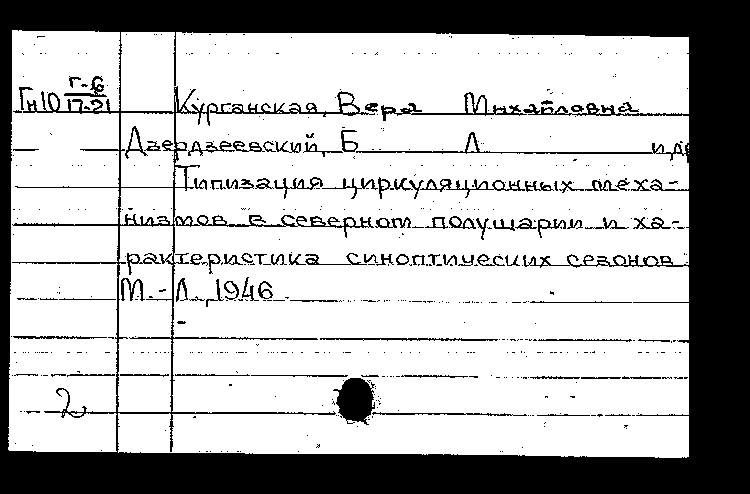 Г-6
Гн10 17-21 Курганская, Вера Михайловна
Дзердзеевский, Б Л и др
Типизация циркуляционных меха-
низмов в северном полушарии и ха-
рактеристика синоптических сезонов
М.-Л., 1946
-
2